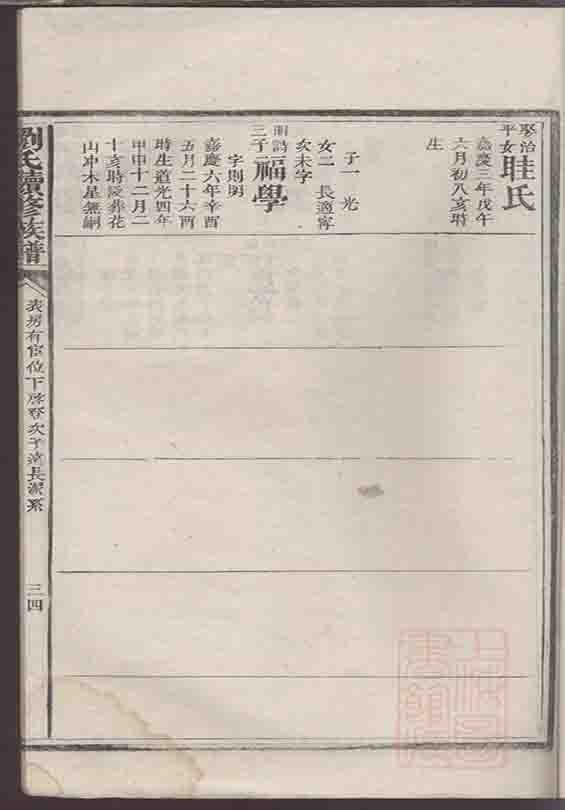 娶治
平女
眭氏
嘉慶三年戊午
六月初八亥時
生
子一 光
女二 長適甯
次未字
明詩
三子
福學
字則明
嘉慶六年辛酉
五月二十六酉
時生道光四年
甲申十二月二
十亥時歿葬花
山冲木星無嗣
劉氏續修族譜
表房有官位下啓登次子
長潔系
三四